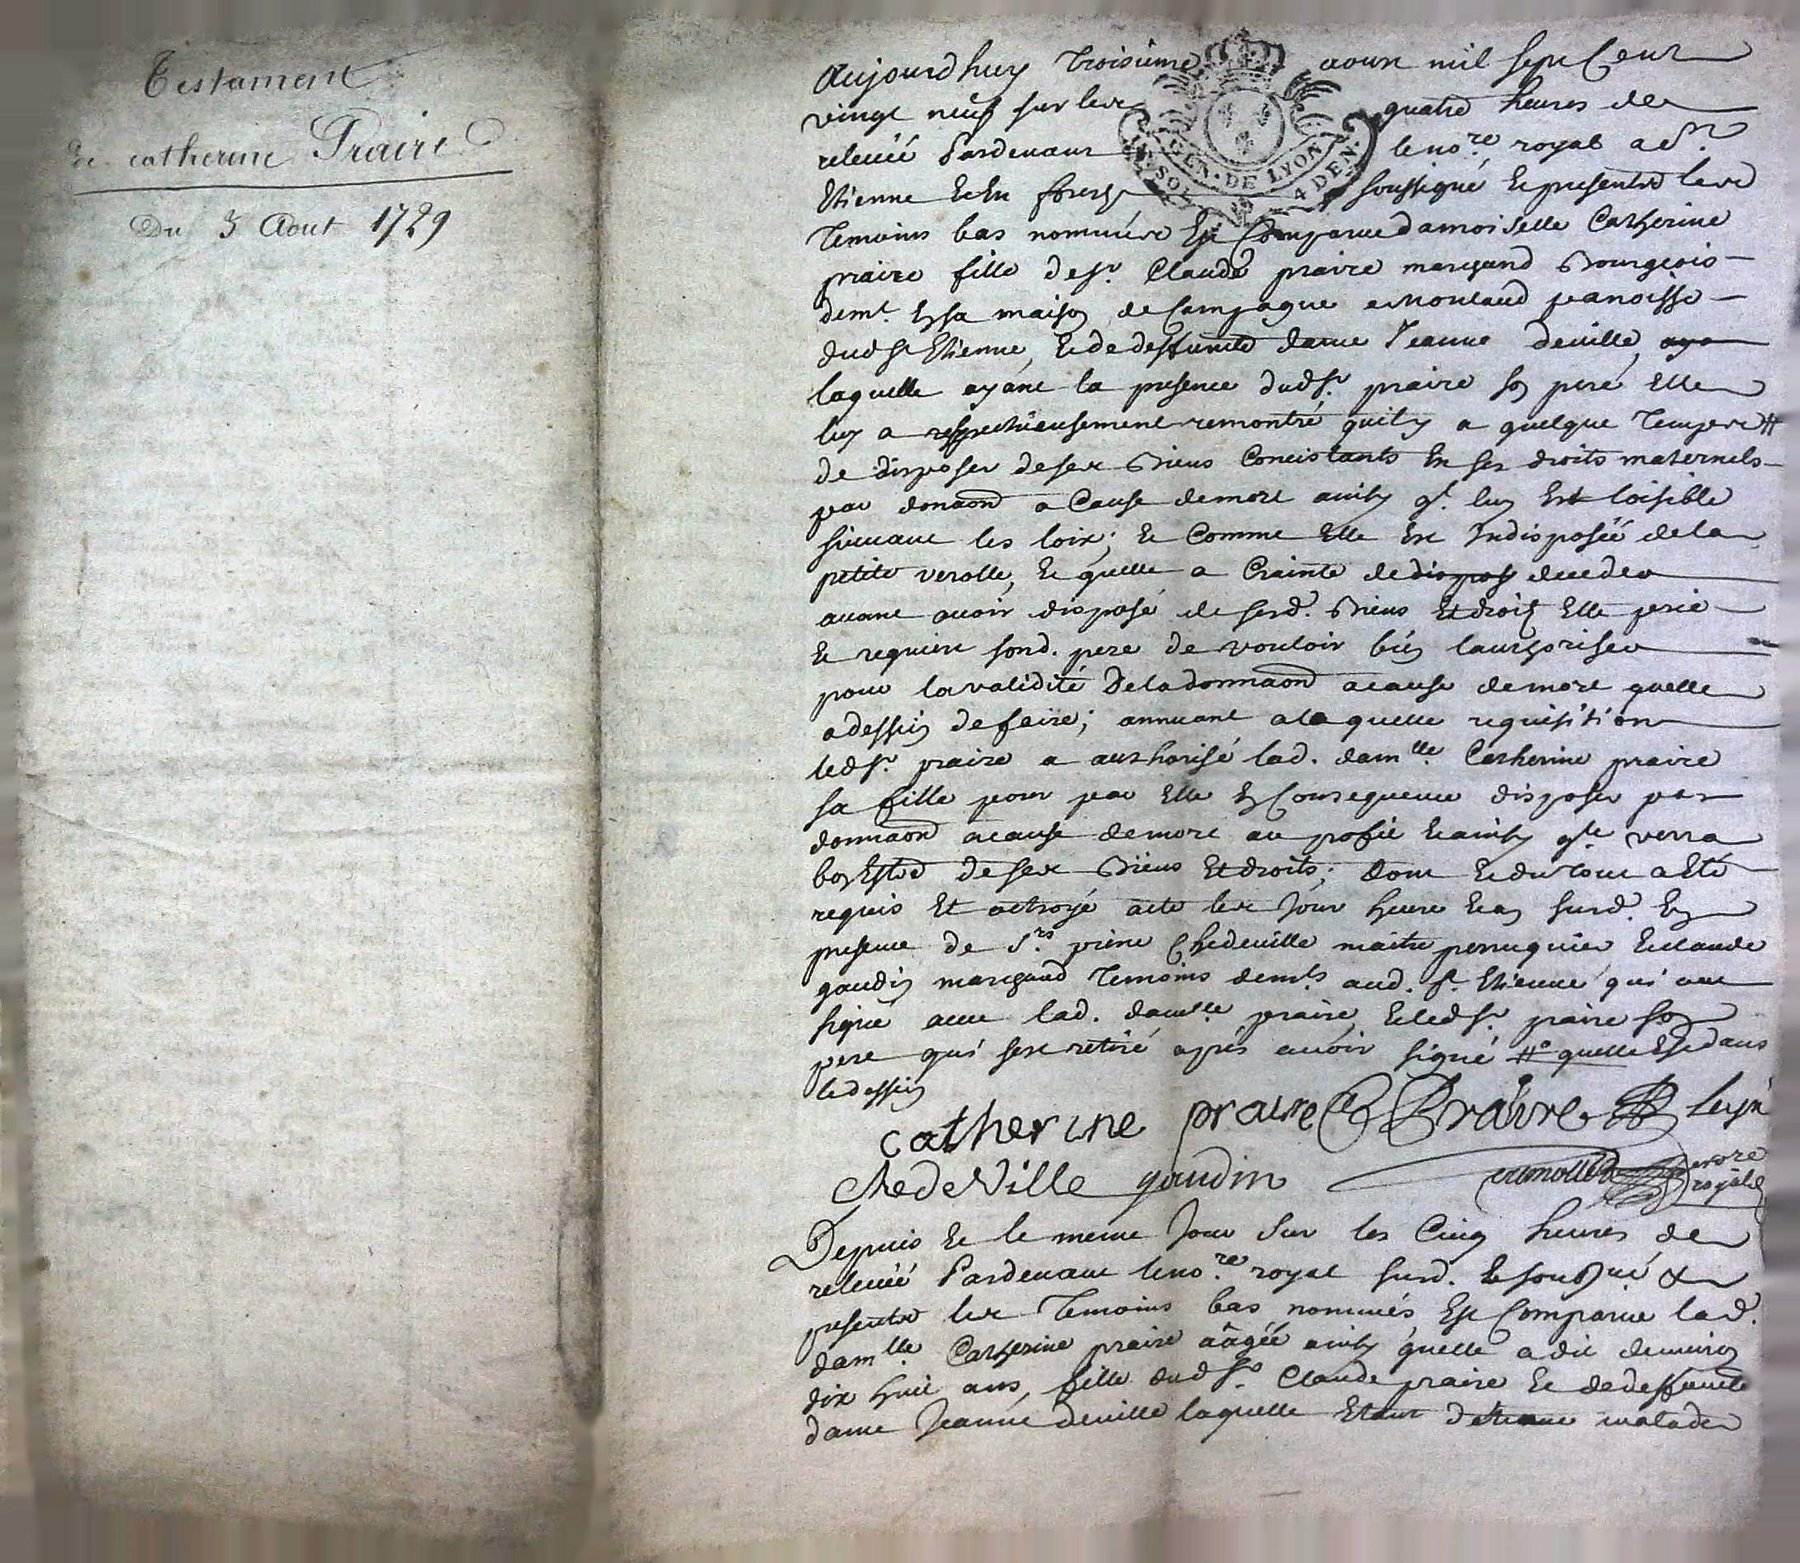 Testament
de catherine Praire
Du 3 Aout 1729
Aujourdhuy troisieme aoust mil sept Cent
vingt neuf sur les quatre heures de
relevée Pardevant le no.re royal a St
Etienne en forest soussigné et presents les
temoins bas nommés Est Comparue damoiselle Catherine
praire fille de sr. Claude praire marchand Bourgeois
demt. en sa maison de Campagne a Montaud paroisse
dud St Etienne, et de deffunte dame Jeanne deville,
laquelle ayant la presence dud sr. praire son pere, Elle
luy a respectueusement remontré quil y a quelque temps #
de disposer de ses Biens Concistants En ses droits maternels
par donaon a Cause de mort ainsy q. luy Est loisible
suivant les loix; et Comme Elle Est Indisposée de la
petite verolle, et quelle a Crainte de deceder
avant avoir disposé de sesd. Biens Et droits Elle prie
et requiert sond. pere de vouloir bien lauthoriser
pour la validité De la donnaon a cause de mort quelle
a dessein de faire; annuant a laquelle requisition
led sr. praire a authorisé lad. damlle. Catherine praire
sa fille pour par Elle En Consequence disposer par
donnaon a cause de mort au profit et ainsy qle verra
bon Estre de ses Biens Et droits; dont et du tout a Eté
requis Et octroyé acte les Jour heure et an susd. En
presence de Srs. pierre Chedeville maitre perruquier et claude
gaudin marchand temoins demts. aud. St. Etienne qui ont
signé avec lad. damlle praire, et led sr. praire son
pere qui sest retiré après avoir signé # quelle Est dans
le dessein
catherine praire Praire
chedeville gaudin no.re
royal
Depuis et le meme Jour Sur les Cinq heures de
relevée Pardevant le no.re royal susd. et soussigné &
presents les temoins bas nommés Est Comparue lad.
damlle. Catherine praire aagée ainsy quelle a dit denviron
dix huit ans, fille dud sr. Claude praire et de deffunte
dame Jeanne deville laquelle Etant detenue malade
GEN. DE LYON
SOL 4 DEN.